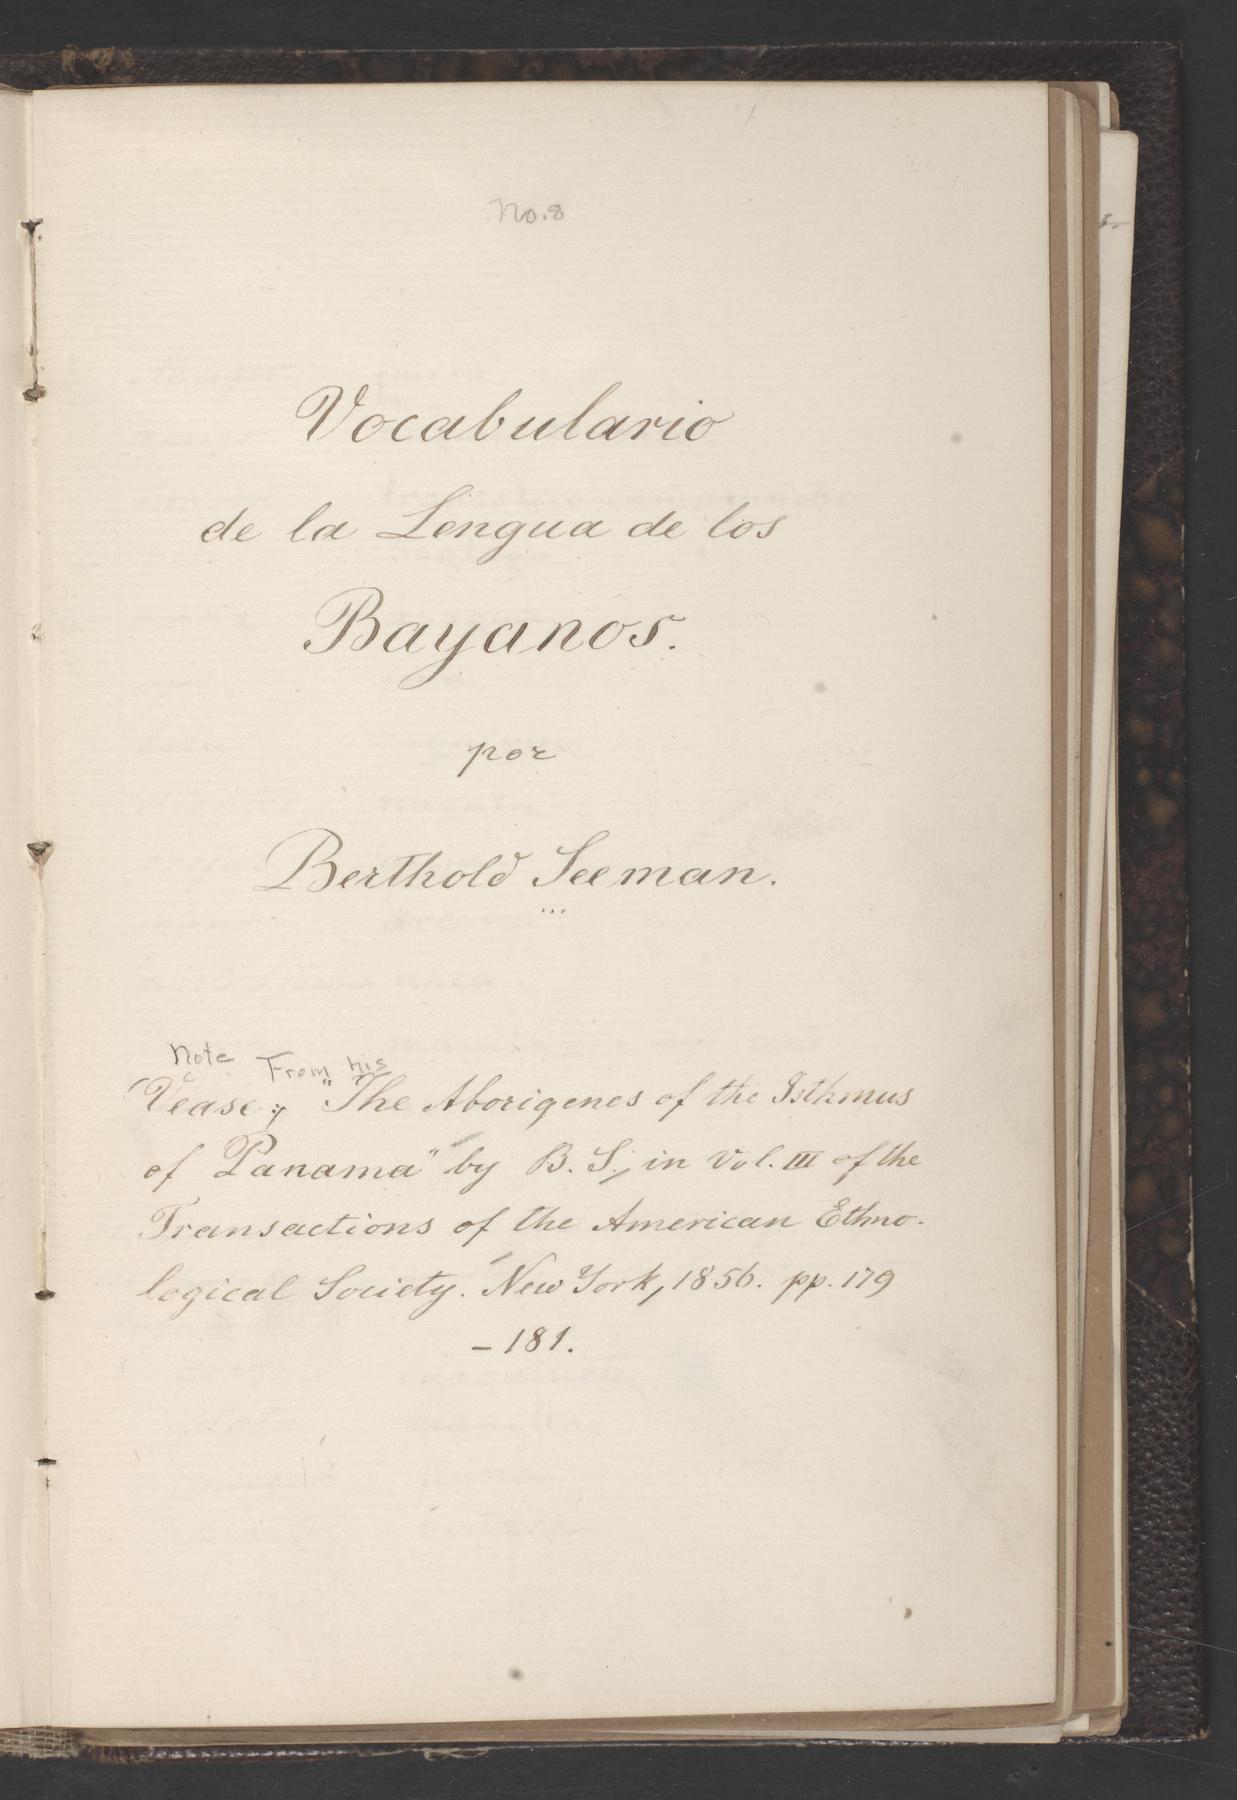 No. 8
Vocabulario
de la Lengua de los
Bayanos.
por
Berthold Seeman.
Note From his
Vease; "The Aborigenes of the Isthmus
of Panama" by B. S., in Vol. III of the
Transactions of the American Ethno-
logical Society. New York, 1856. pp. 179
– 181.